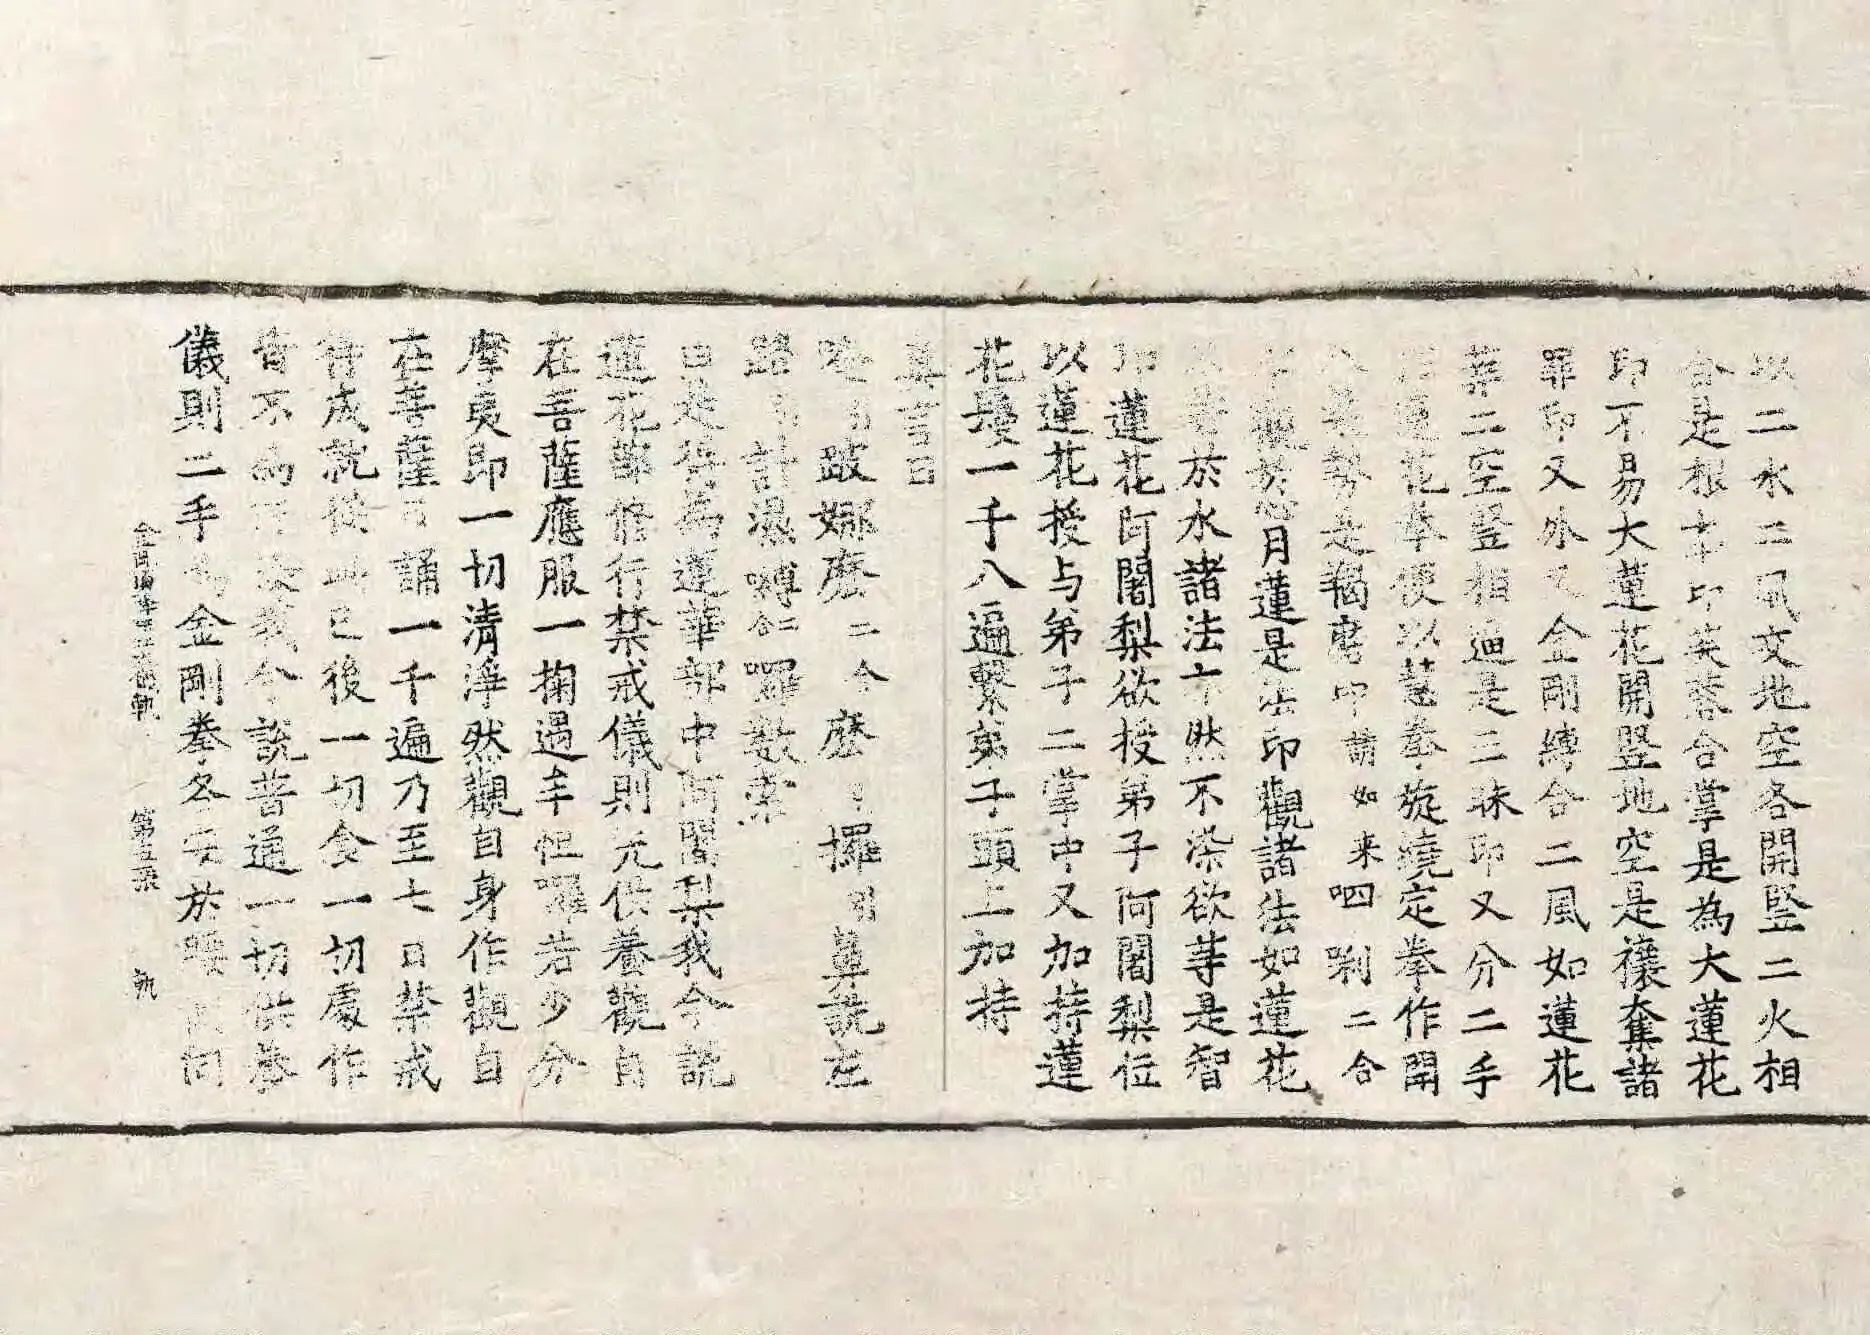 以二水二風交地空各開竪二火相
合是根本印芙蓉合掌是為大蓮花
印不易大蓮花開竪地空是禳奪諸
罪印又外叉金剛縛合二風如蓮花
葉二空竪相逼是三昧印又分二手
蓮花拳便以慧拳旋繞定拳作開
勢是羯磨印請如来呬唎二合
觀於心月蓮是出印觀諸法如蓮花
著於水諸法亦然不染欲等是智
印蓮花阿闍梨欲授弟子阿闍梨位
以蓮花授与弟子二掌中又加持蓮
花鬘一千八遍繫弟子頭上加持
真言曰
唵引跛娜麽二合麽攞引算説左
路引計濕嚩二合囉數索
曰是得為蓮華部中阿闍梨我今説
蓮花部修行禁戒儀則先供養觀自
在菩薩應服一掬遏半怛囉若少分
摩夷即一切清淨然觀自身作觀自
在菩薩誦一千遍乃至七日禁戒
得成就從此已後一切食一切處作
皆不染我今説普通一切供養
儀則二手為金剛拳各安於腰向
軌 第五張 軌